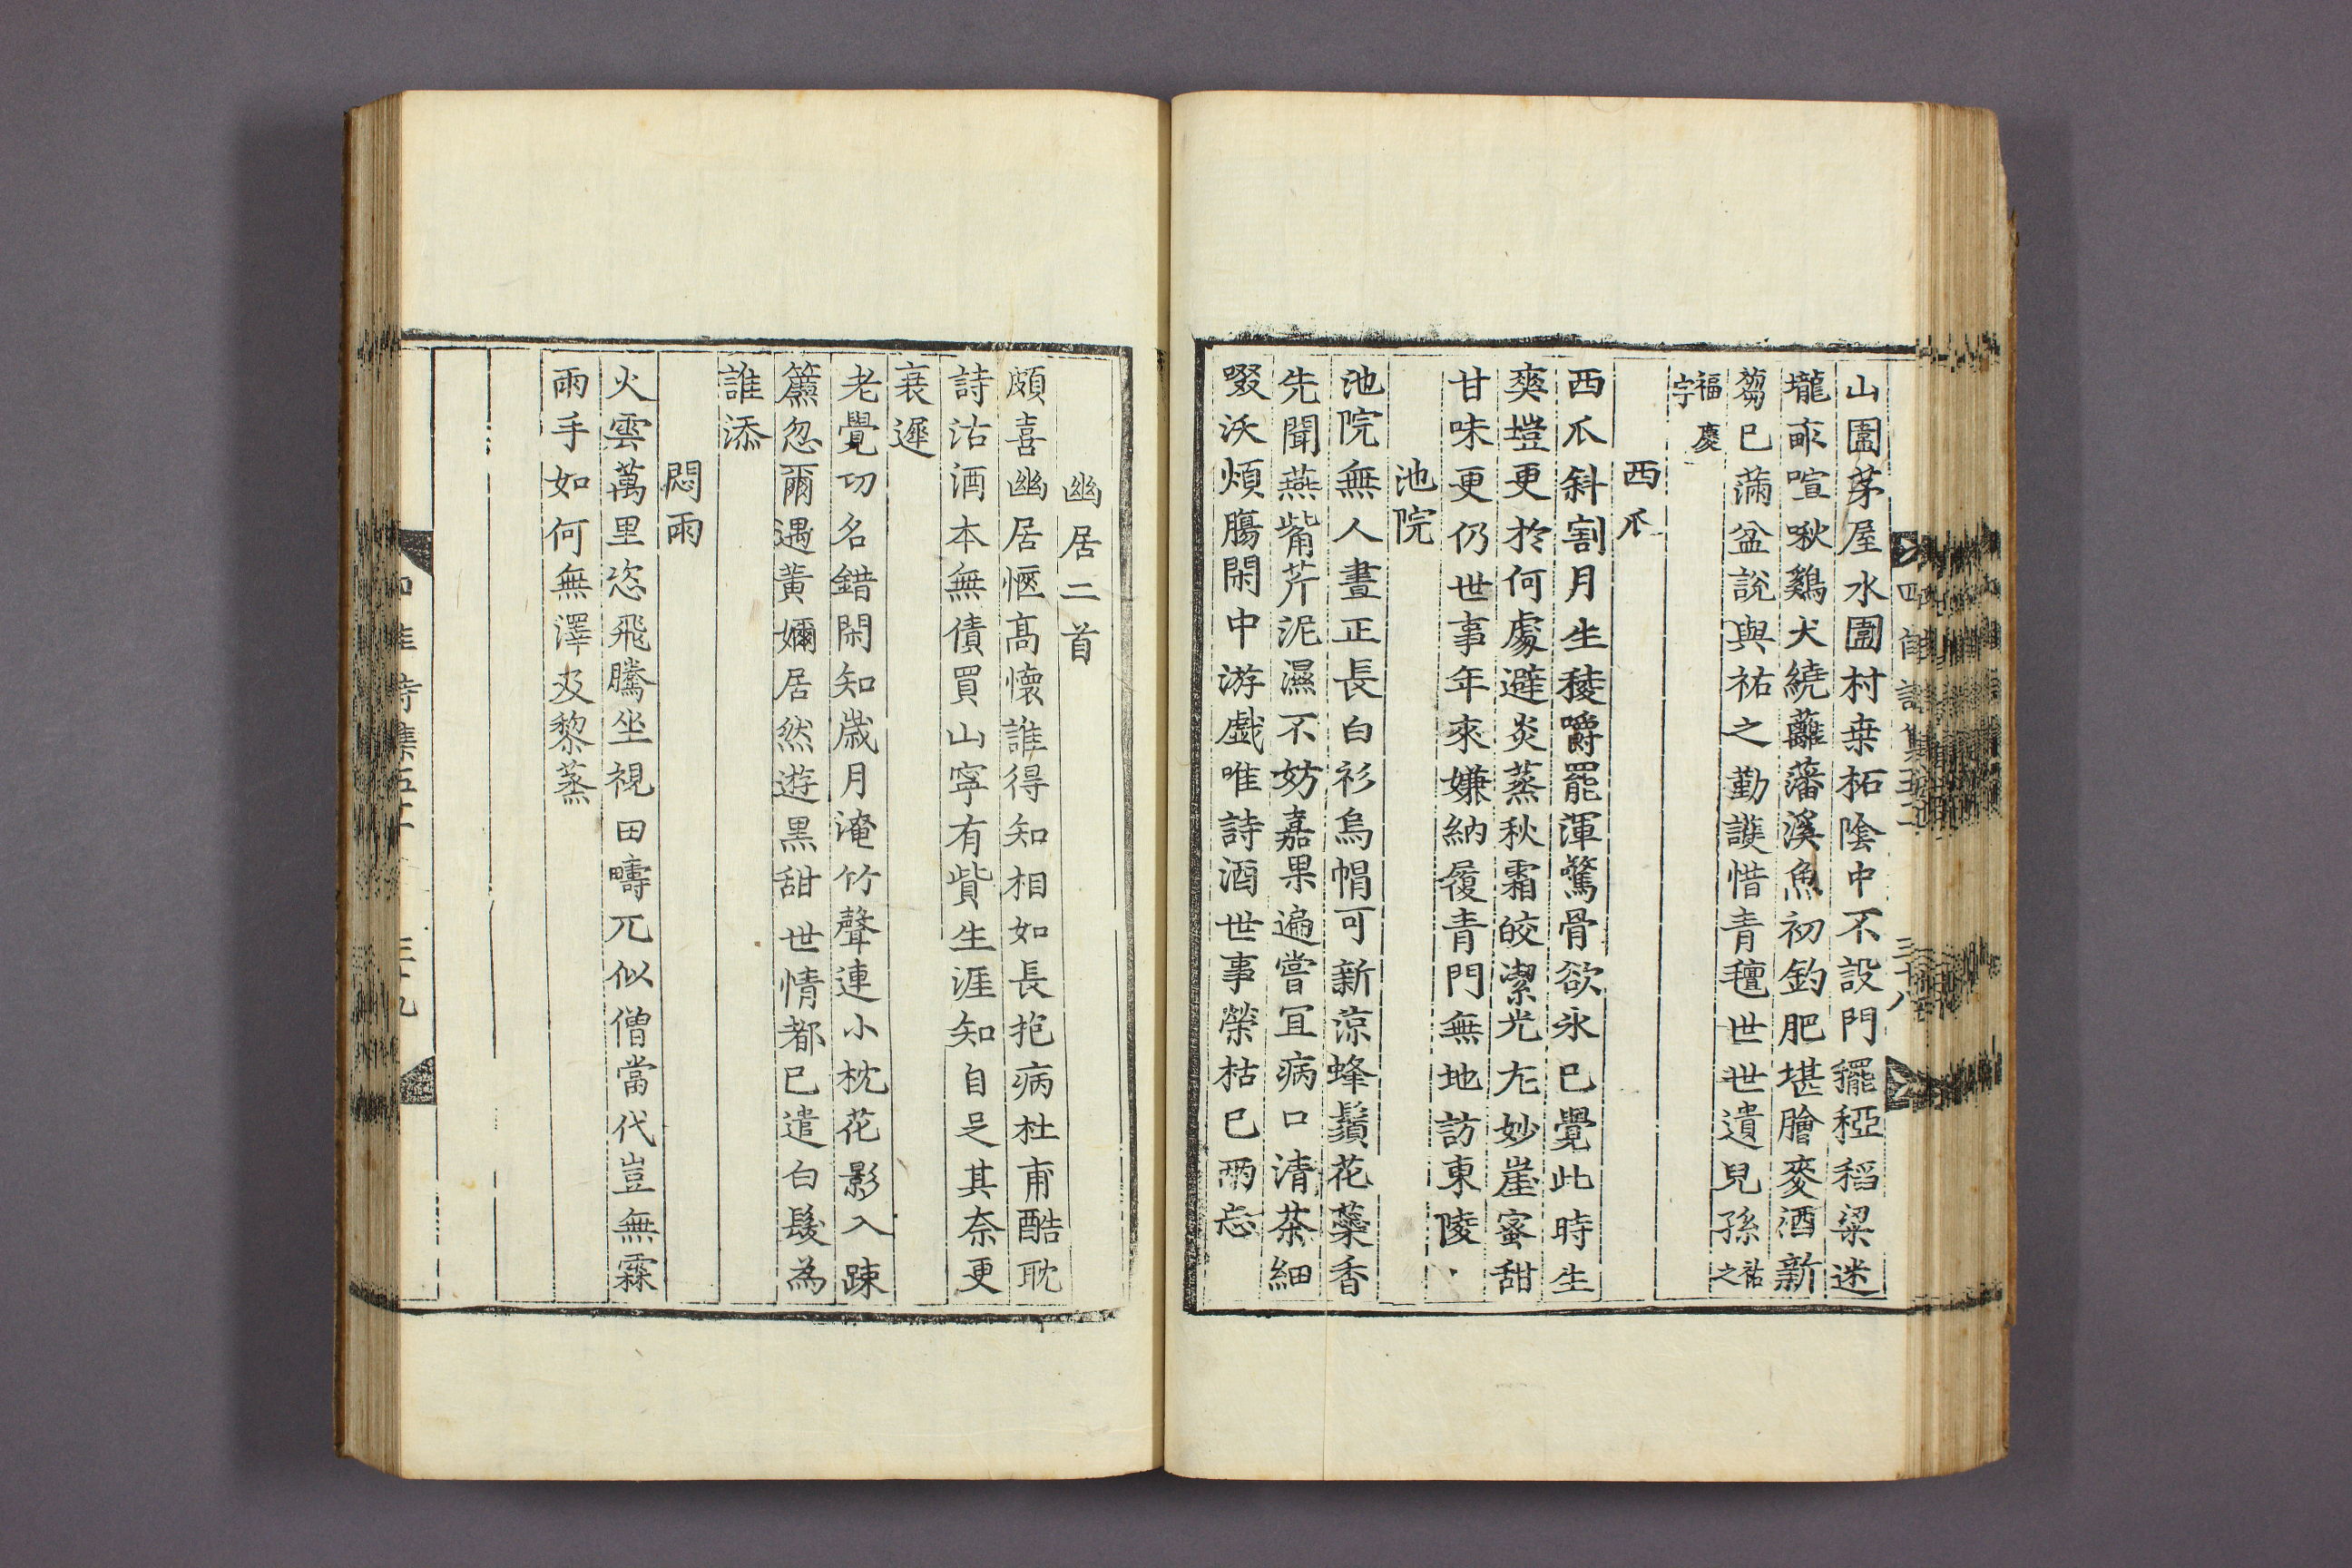 山圍茅屋水圍村桒柘陰中不設門䆉稏稻粱迷
壠畞喧啾鷄犬繞蘺藩溪魚初釣肥堪膾麥酒新
蒭已滿盆說與祐之勤護惜青氊世世遺兒孫祐之
福慶字
西爪
西爪斜割月生稜嚼罷渾驚骨欲氷已覺此時生
爽塏更於何處避炎蒸秋霜皎潔光尤妙崖蜜甜
甘味更仍世事年來嫌納履青門無地訪東陵
池院
池院無人晝正長白衫烏帽可新涼蜂鬚花蘂香
先聞燕觜芹泥濕不妨嘉果遍嘗宜病口清茶細
啜沃煩膓閑中游戲唯詩酒世事榮枯已兩忘
幽居二首
頗喜幽居愜高懷誰得知相如長抱病杜甫酷耽
詩沽酒本無債買山寧有貲生涯知自足其奈更
衰遲
老覺功名錯閑知歲月淹竹聲連小枕花影入踈
簾忽爾遇黃嬭居然遊黑甜世情都已遣白髮為
誰添
悶雨
火雲萬里恣飛騰坐視田疇兀似僧當代豈無霖
雨手如何無澤及黎蒸